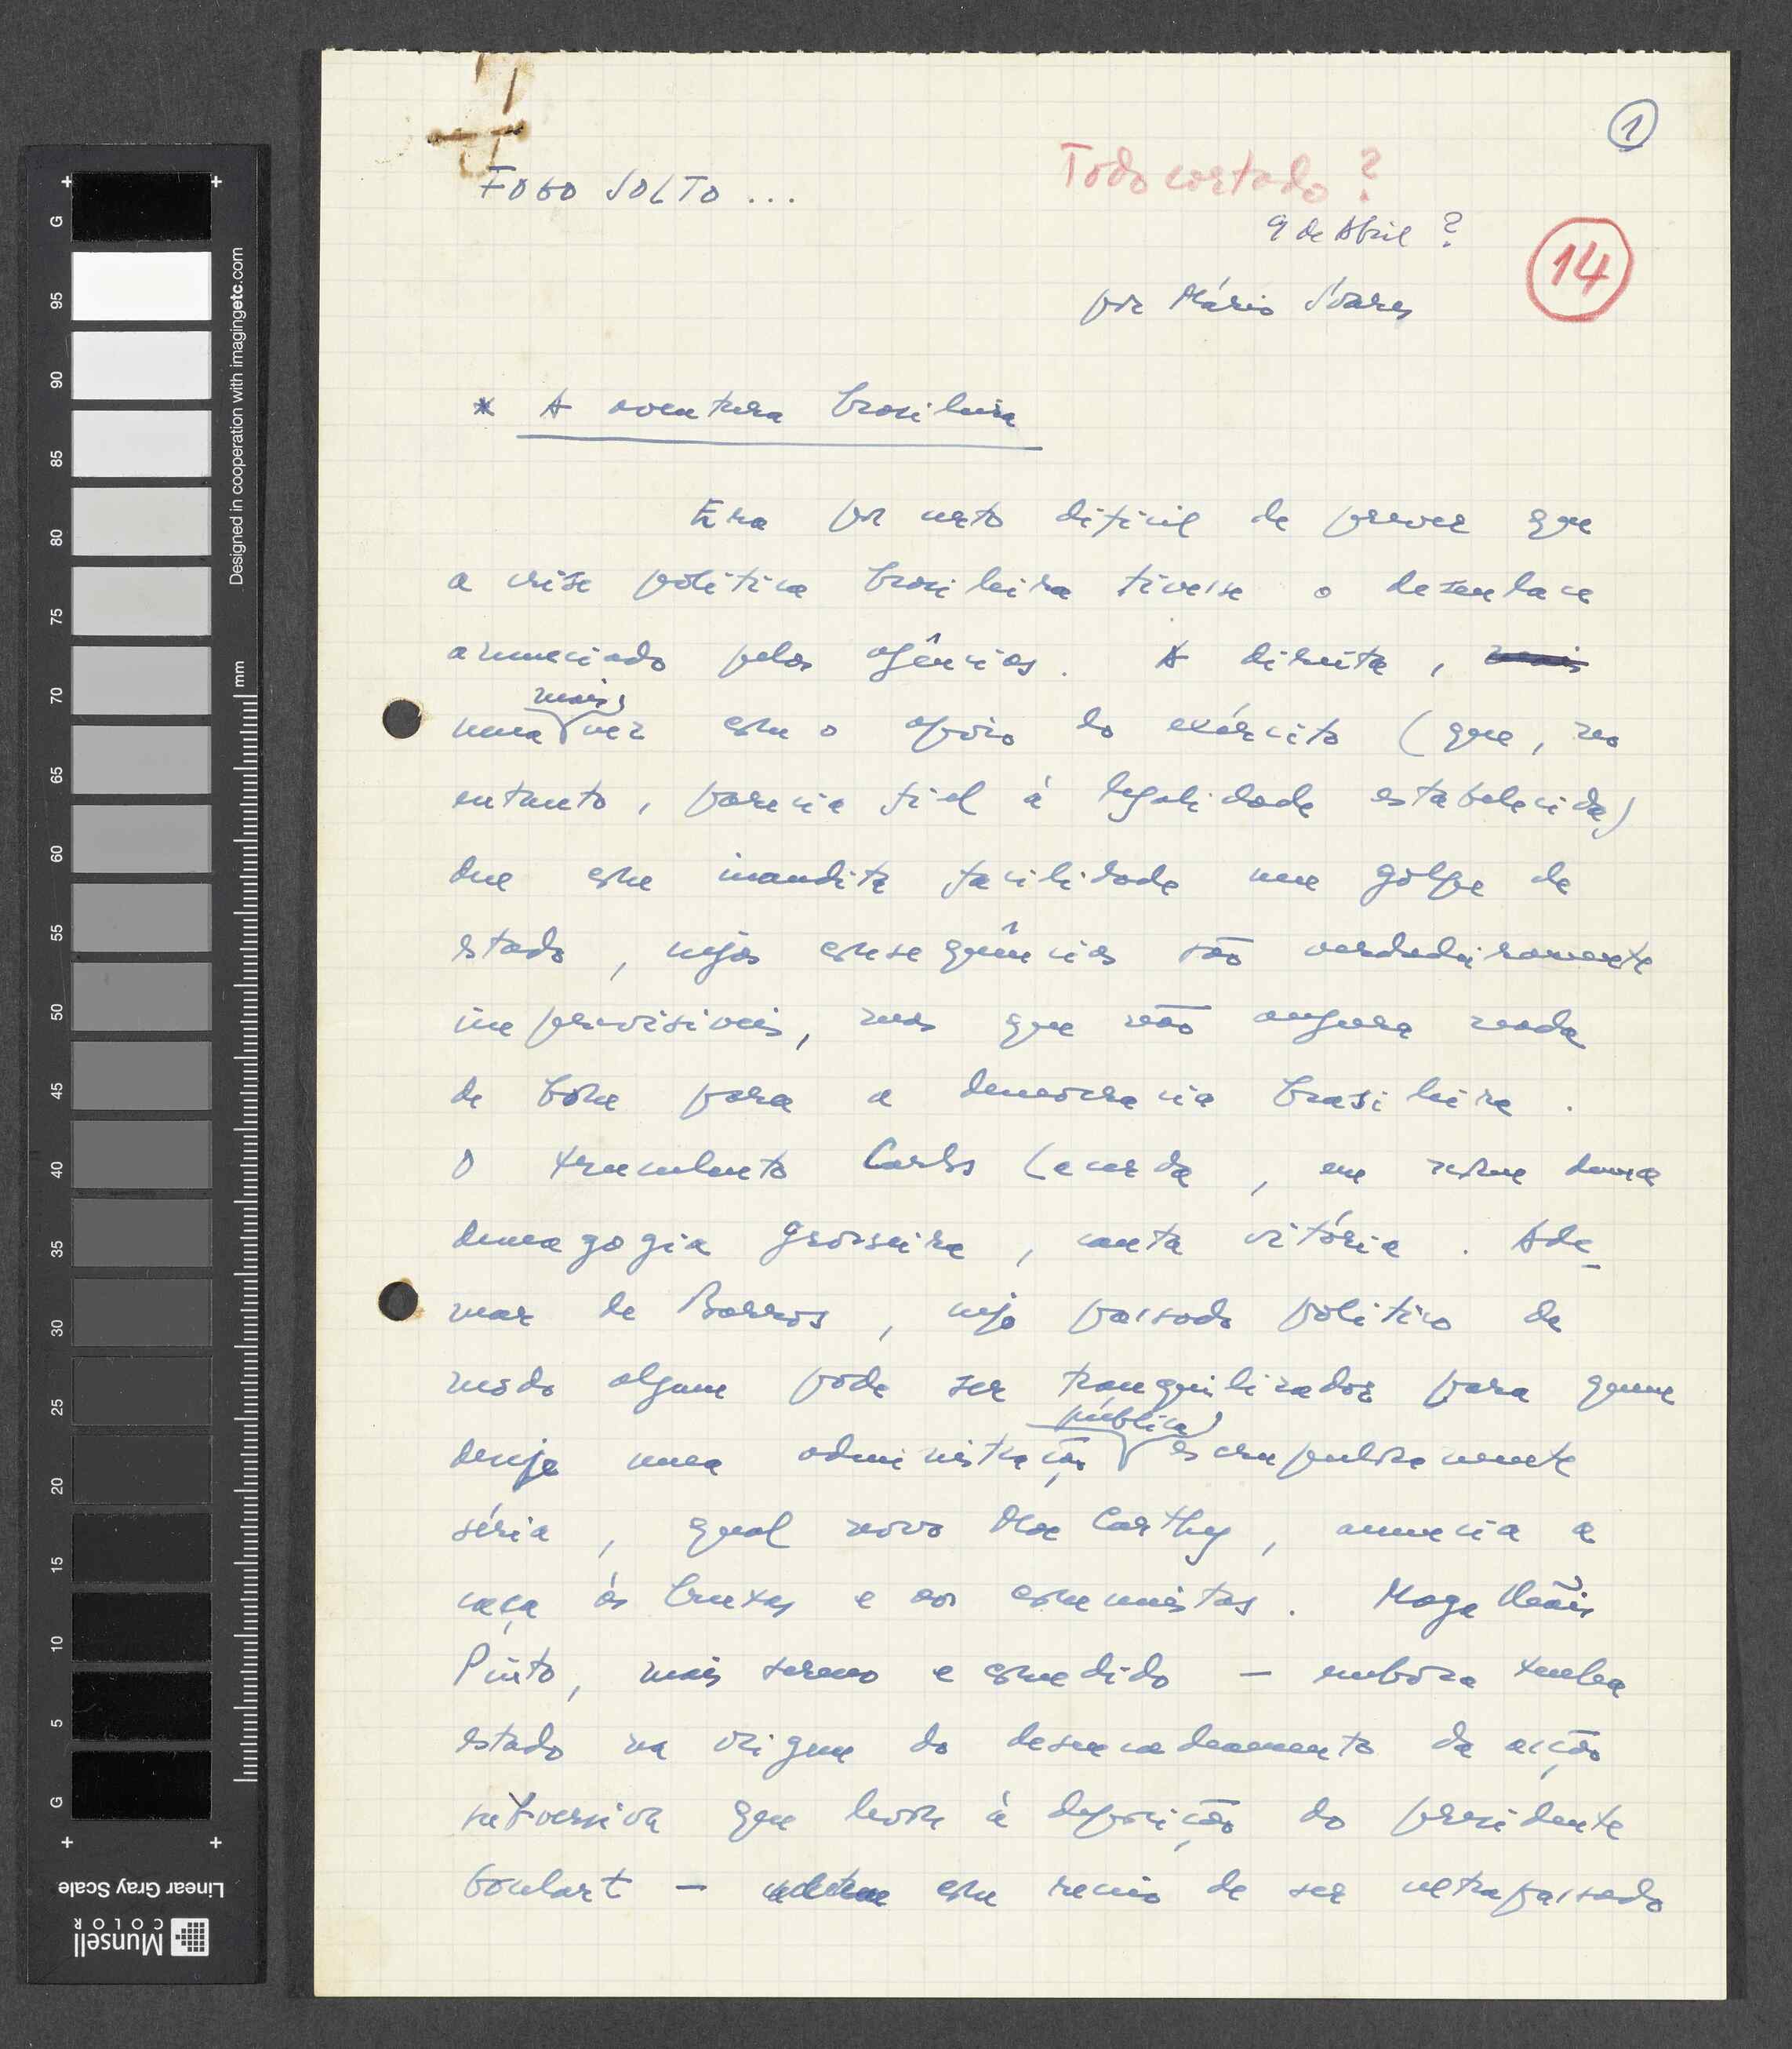 1
FOGO SOLTO ...
Todo cortado ?
9 de Abril ?
14
por Mário Soares
* A aventura brasileira
Era por certo difícil de prever que
a crise política brasileira tivesse o desenlace
anunciado pelas agências. A direita , mais
uma mais vez com o apoio do exército (que, no
entanto, parecia fiel à legalidade estabelecida)
deu com inaudita facilidade um golpe de
estado , cujas consequências são verdadeiramente
imprevisíveis, mas que não augura nada
de bom para a democracia brasileira .
O truculento Carlos Lacerda , em nome duma
demagogia grosseira , canta vitória . Ade
mar de Barros , cujo passado político de
modo algum pode ser tranquilizador para quem
deseje uma administração pública escrupulosamente
séria , qual novo Mac Carthy, anuncia a
caça às bruxas e aos comunistas . Magalhães
Pinto, mais sereno e comedido – embora tenha
estado na origem do desencadeamento da acção
subversiva que levou à deposição do presidente
Goulart – com receio de ser ultrapassado
G
95
90
85
80
75
70
65
60
55
50
45
40
35
30
25
20
15
10
5
G
Designed in cooperation with imagingetc.com
mm
Linear Gray Scale
Munsell
COLOR